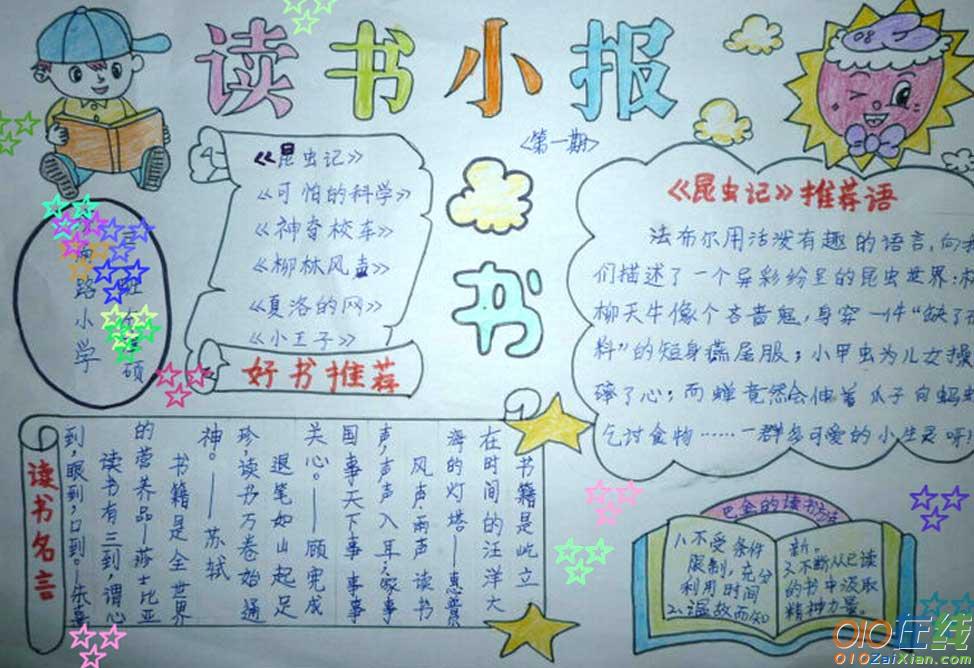 读书小报
<第一期>
《昆虫记》
《可怕的科学》
《神奇校车》
《柳林风声》
《夏洛的网》
《小王子》
好书推荐
书
路小学
硕
08
《昆虫记》推荐语
法布尔用活泼有趣的语言,向我
们描述了一个异彩纷呈的昆虫世界:
柳天牛像个吝啬鬼,身穿一件“缺了布
料”的短身燕尾服;小甲虫为儿女操
碎了心;而蝉竟然会伸着爪子向蚂蚁
乞讨食物……一群多可爱的小生灵呀
读书名言
书籍是屹立
在时间的汪洋大
海的灯塔——惠普
风声雨声读书
声,声声入耳;家事
国事天下事事事
关心。——顾宪成
退笔如山起足
珍,读书万卷始通
神。——苏轼
书籍是全世界
的营养品—莎士比亚
读书有三到,谓心
到,眼到,口到。—朱熹
巴金的读书方法
1.不受条件
限制,充分
利用时间
2.温故而知
新。
3.不断从已读
的书中汲取
精神力量。
010在线
010ZaiXian.com